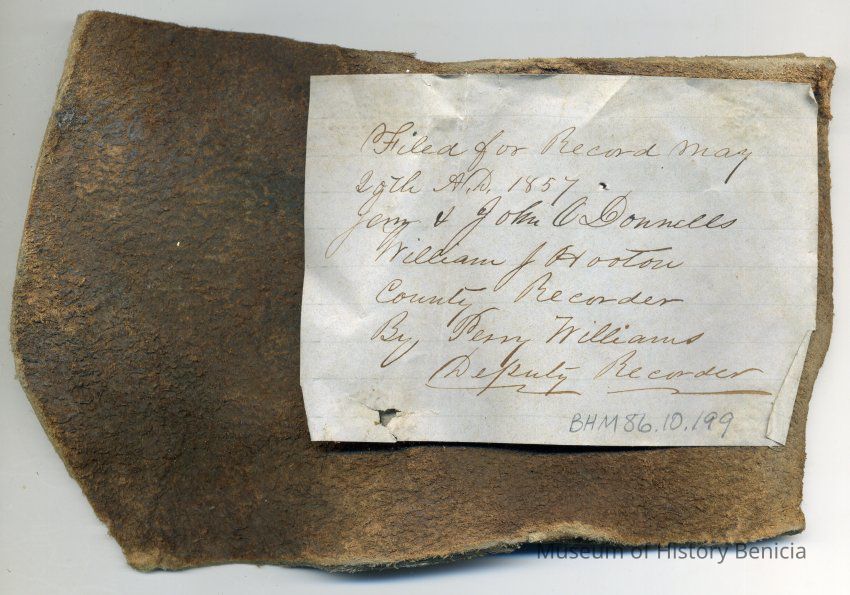 Filed for Record May
29th A.D. 1857
Jerry & John O Donnells
William J Hooton
County Recorder
By Perry Williams
Deputy Recorder
BHM86.10.199
Museum of History Benicia